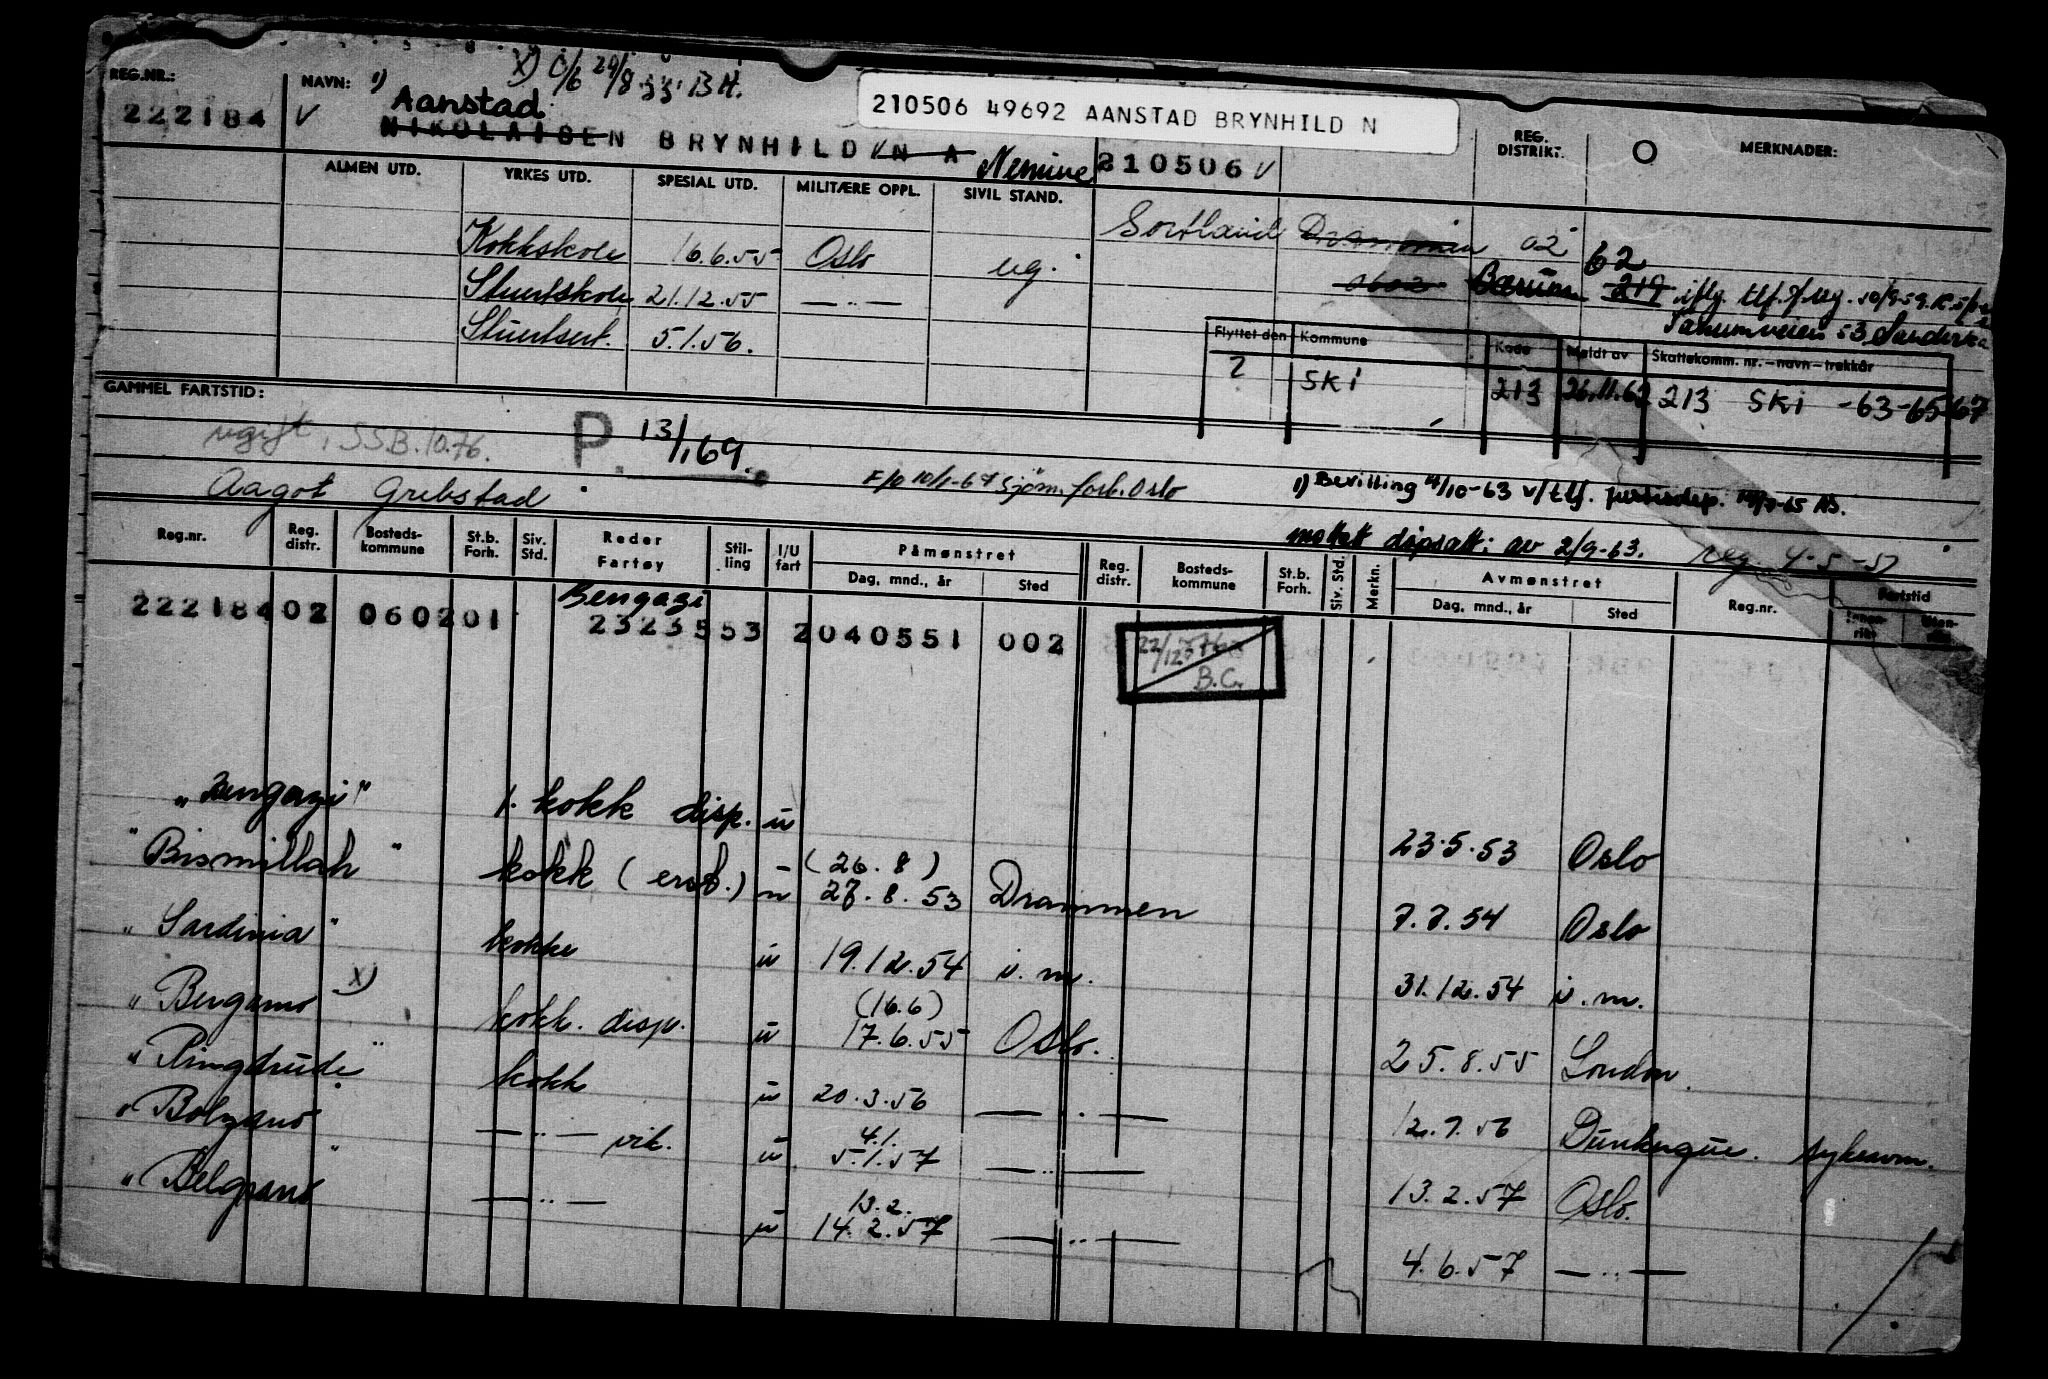 X) 29/8 55. B.H.
REG.NR.: NAVN: 1) Aanstad 210506 49692 AANSTAD BRYNHILD N REG. DISTRIKT. O MERKNADER:
222184 V NIKOLAISEN BRYNHILD V N A Nemine 210506 V
ALMEN UTD. YRKES UTD. SPESIAL UTD. MILITÆRE OPPL. SIVIL STAND.
Kokkskole 16.6.55 Oslo ug. Sortland Drammen 02 62
Stuertskole 21.12.55 — ·· — 0602 Bærum 219 iflg. tlf. 10/9-59
Stuertsert. 5.1.56. 53
Flyttet den Kommune Kode Meldt av Skattekomm. nr.—navn—trekkår
? SKi 213 26.11.62 213 SKi -63-65-67
GAMMEL FARTSTID:
ugift, SSB.10.76. P. 13/1 69.
Aagot Grebstad F/o 10/1-67 Sjøm. forb. Oslo 1) Bevilling 4/10-63 v/tlf.
mottatt av 2/9-63. reg. 4-5-51
Reg.nr. Reg. distr. Bosteds- kommune St.b. Forh. Siv. Std. Reder Fartøy Stil- ling I/U fart Påmønstret Dag, mnd., år Sted Reg. distr. Bosteds- kommune St.b. Forh. Siv. Std. Merkn. Avmønstret Dag, mnd., år Sted Reg.nr. Fartstid Innen- riks Uten- riks
Bengazi
222184 02 0602 01 2323553 2 040551 002 22/12 B.C.
"Bengazi" 1. kokk disp. u 23.5.53 Oslo
"Bismillah" kokk (erst.) u (26.8) 27.8.53 Drammen 7.7.54 Oslo
"Sardinia" kokke u 19.12.54 i.m. 31.12.54 i.m.
"Bergamo" X) kokk. disp. u (16.6) 17.6.55 Oslo. 25.8.55 London.
"Ringdrude" kokk u 20.3.56 — ·· — 12.7.56 Dunkerque. sykdom.
"Bolzano" — ·· — vik. u 4.1. 5.1.57 — ·· — 13.2.57 Oslo.
"Belgrano" — ·· — u 13.2. 14.2.57 — ·· — 4.6.57 — ·· —